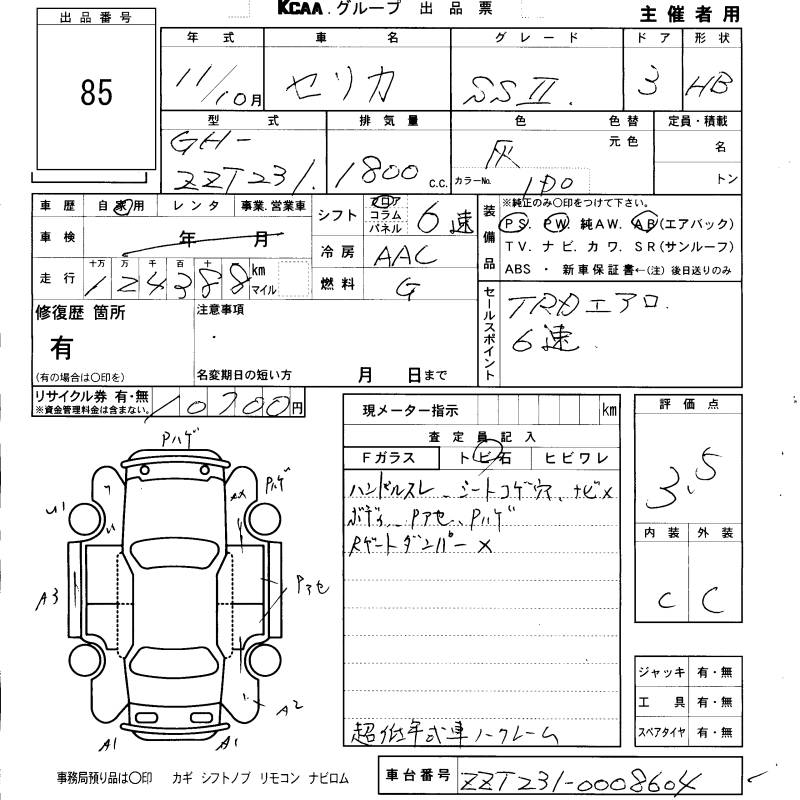 KCAA グループ 出品票
主催者用
出品番号
85
年式 車名 グレード ドア 形状
11/10月 セリカ SSⅡ. 3 HB
型式 排気量 色 色替 定員・積載
GH-
ZZT231. 1800 c.c. 灰 元色 名
カラーNo. 1D0 トン
車歴 自家用 レンタ 事業.営業車
シフト フロア コラム パネル 6速
車検 年 月
冷房 AAC
走行 十万 万 千 百 十 一 km マイル
124388
燃料 G
装備品
※純正のみ〇印をつけて下さい。
PS. PW. 純AW. AB(エアバック)
TV. ナビ. カワ. SR(サンルーフ)
ABS ・ 新車保証書←(注)後日送りのみ
修復歴 箇所
有
(有の場合は〇印を)
注意事項
名変期日の短い方 月 日まで
セールスポイント
TRDエアロ.
6速.
リサイクル券 有・無
※資金管理料金は含まない。
10700円
現メーター指示 km
評価点
3.5
査定員記入
Fガラス トビ石 ヒビワレ
ハンドルスレ、シートコゲ穴、ナビ×
ボディ、Pアセ、Pハゲ
Rゲートダンパー×
内装 外装
C C
Pハゲ
Pハゲ
U1
A3
Pアセ
A2
A1
A1
ジャッキ 有・無
工具 有・無
スペアタイヤ 有・無
超低年式車ノークレーム
事務局預り品は〇印 カギ シフトノブ リモコン ナビロム
車台番号 ZZT231-0008604